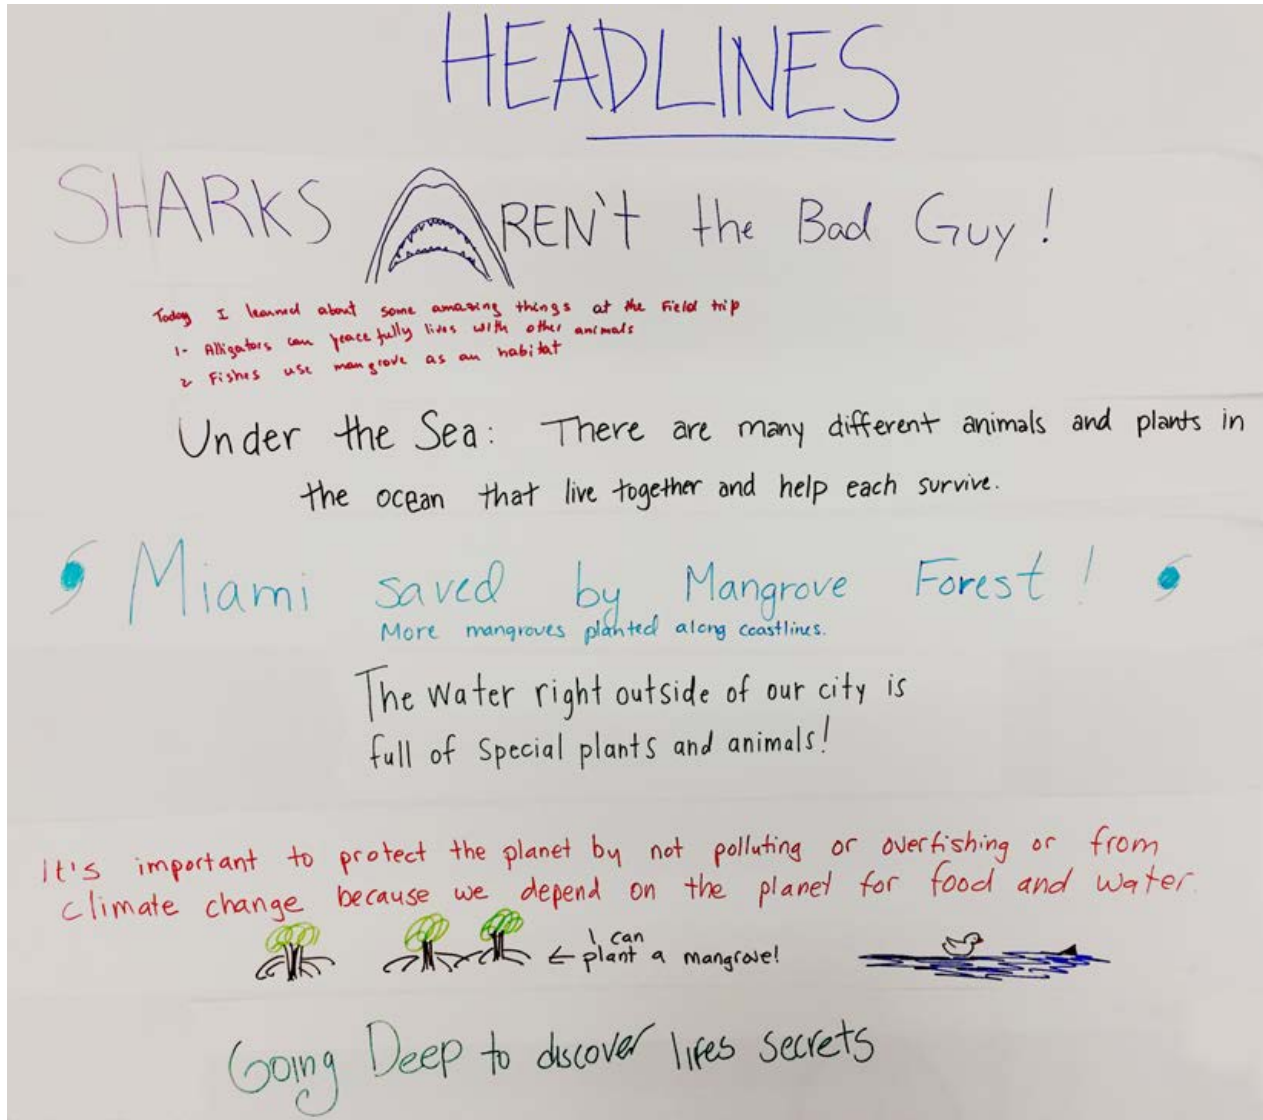 HEADLINES
SHARKS AREN't the Bad Guy!
Today I learned about some amazing things at the Field trip
1- Alligators can peacefully lives with other animals
2 Fishes use mangrove as an habitat
Under the Sea: There are many different animals and plants in
the ocean that live together and help each survive.
Miami saved by Mangrove Forest!
More mangroves planted along coastlines.
The water right outside of our city is
full of special plants and animals!
It's important to protect the planet by not polluting or overfishing or from
climate change because we depend on the planet for food and water.
I can
← plant a mangrove!
Going Deep to discover lifes secrets